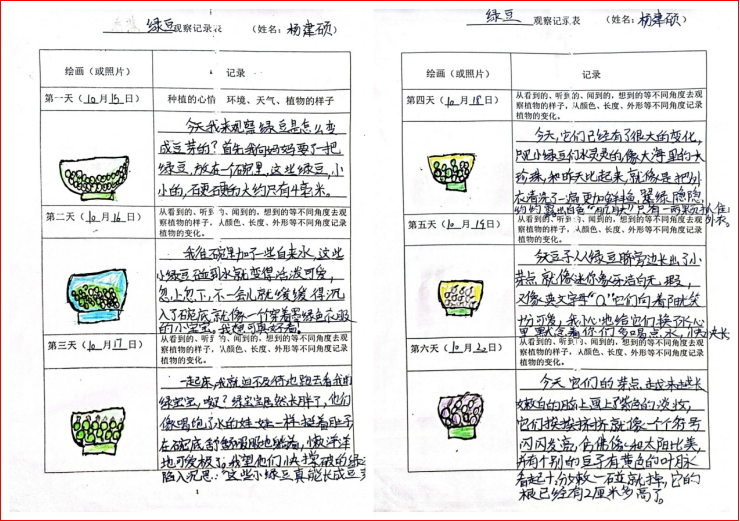 绿豆观察记录表 (姓名：杨建硕)
绘画（或照片）
记录
第一天（10月15日）
种植的心情 环境、天气、植物的样子
今天我来观察绿豆是怎么变
成豆芽的？首先我向妈妈要了一把
绿豆，放在一个碗里，这些绿豆，小
小的，石更石更的大约只有4毫米。
第二天（10月16日）
从看到的、听到的、闻到的，想到的等不同角度去观
察植物的样子，从颜色、长度、外形等不同角度记录
植物的变化。
我往碗里加了一些自来水，这些
小绿豆碰到水就变得活泼可爱，
忽上忽下，不一会儿就缓缓得沉
入了碗底，就像一个穿着墨绿色衣服
的小宝宝。我想可真好看。
第三天（10月17日）
从看到的、听到的、闻到的，想到的等不同角度去观
察植物的样子，从颜色、长度、外形等不同角度记录
植物的变化。
一起床，我就迫不及待地跑去看我的
绿宝宝，咦？绿宝宝居然长胖了，他们
像喝饱了水的娃娃一样挺着肚子
在碗底舒舒服服地躺着，懒洋洋
地可爱极了。我望他们快撑破的绿
陷入沉思：“这些小绿豆真能长成豆
绿豆观察记录表 (姓名：杨建硕)
绘画（或照片）
记录
第四天（10月18日）
从看到的、听到的、闻到的，想到的等不同角度去观
察植物的样子，从颜色、长度、外形等不同角度记录
植物的变化。
今天，它们已经有了很大的变化，
小绿豆们水灵灵的像大海里的大
珍珠，和昨天比起来，就像是把外
衣清洗了一扁更加鲜艳，翠绿隐隐
约约露出白色“肌肤”只有一两颗扒住
外衣。
第五天（10月19日）
从看到的、听到的、闻到的，想到的等不同角度去观
察植物的样子，从颜色、长度、外形等不同角度记录
植物的变化。
绿豆子从绿豆脐旁边长出了小
芽点就像迷你象牙洁白无瑕，
又像英文字母“Q”它们向着阳光
十分可爱，我小心地给它们换了水心
里默念着你们多喝点水，快快长
第六天（10月20日）
从看到的、听到的、闻到的，想到的等不同角度去观
察植物的样子，从颜色、长度、外形等不同角度记录
植物的变化。
今天它们的芽点越来越长
嫩白的脸上画上了紫色的淡妆，
它们挨挨挤挤就像一个个符号
闪闪发亮，仿佛像和太阳比美，
并有个别的豆子有黄色的叶脉
看起十分嫩一碰就掉，它的
根已经有2厘米多高了。